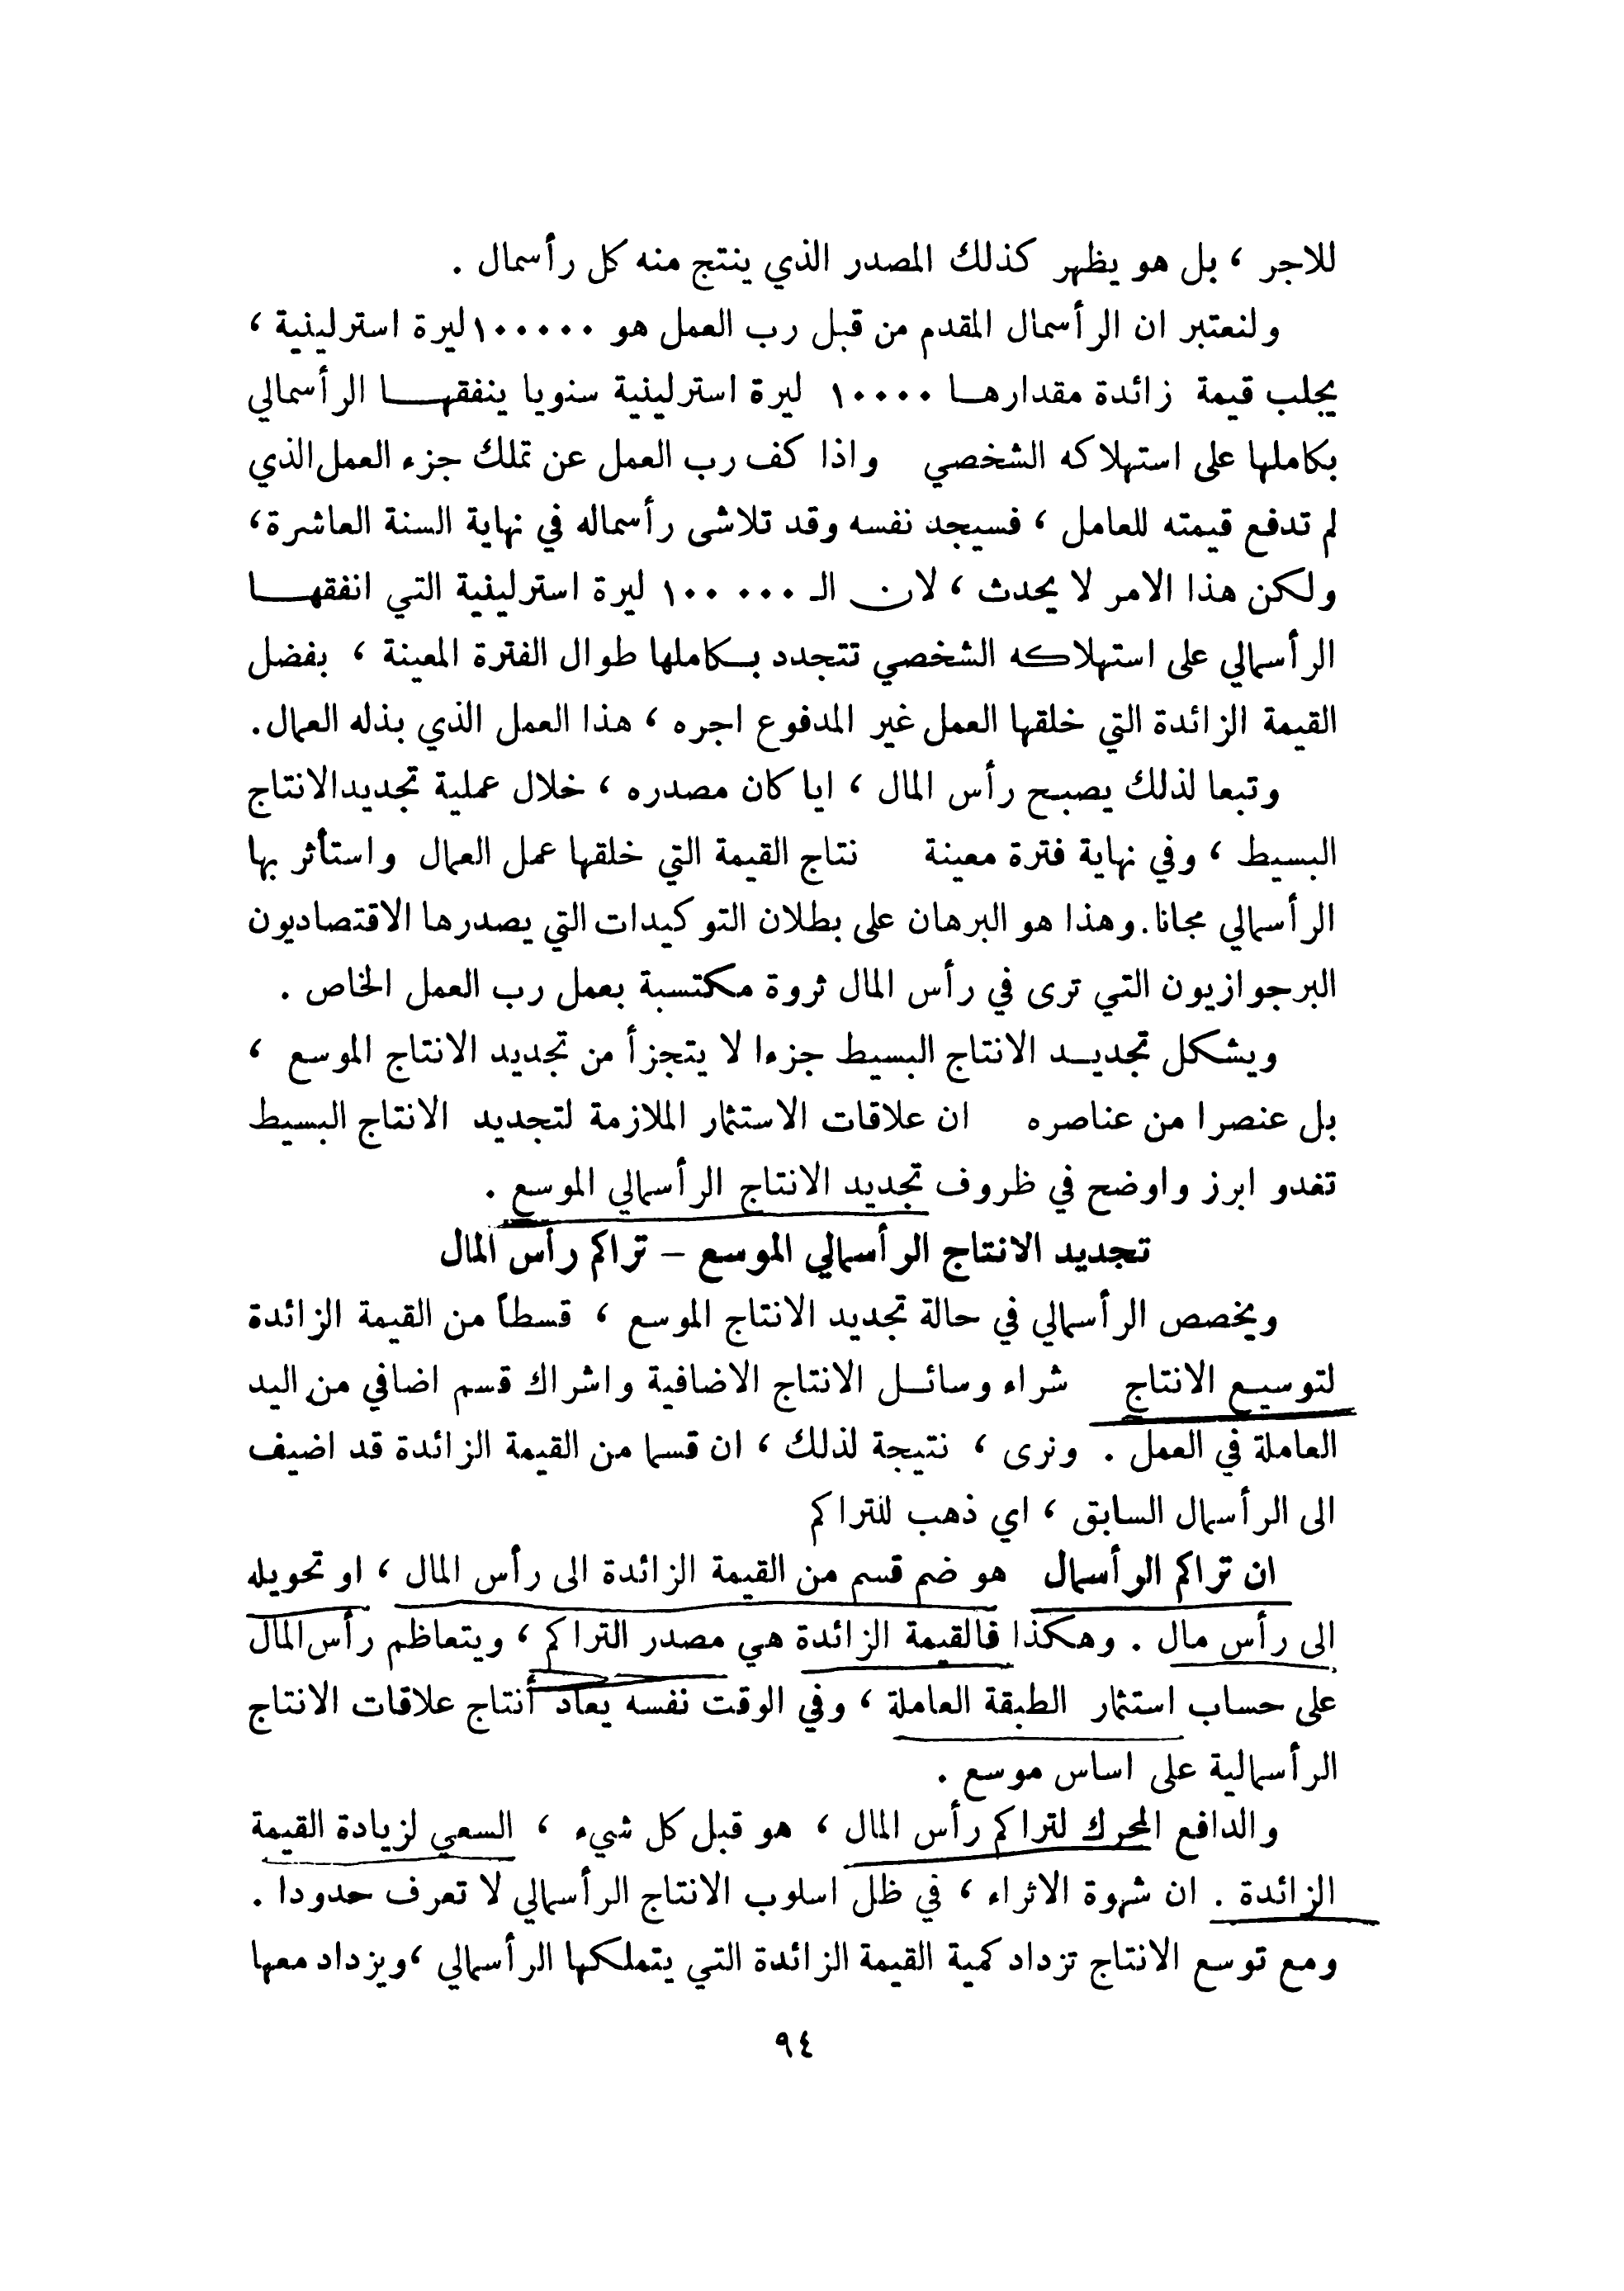 للاجر ، بل هو يظهر كذلك المصدر الذي ينتج منه كل رأسمال .
ولنعتبر ان الرأسمال المقدم من قبل رب العمل هو ١٠٠٠٠٠ ليرة استرلينية ،
يجلب قيمة زائدة مقدارهـا ١٠٠٠٠ ليرة استرلينية سنويا ينفقهـــا الرأسمالي
بكاملها على استهلاكه الشخصي واذا كف رب العمل عن تملك جزء العمل الذي
لم تدفع قيمته للعامل ، فسيجد نفسه وقد تلاشى رأسماله في نهاية السنة العاشرة ،
ولكن هذا الامر لا يحدث ، لان الـ ١٠٠ ٠٠٠ ليرة استرلينية التي انفقهـــا
الرأسمالي على استهلاكه الشخصي تتجدد بـكاملها طوال الفترة المعينة ، بفضل
القيمة الزائدة التي خلقها العمل غير المدفوع اجره ، هذا العمل الذي بذله العمال.
وتبعا لذلك يصبح رأس المال ، ايا كان مصدره ، خلال عملية تجديد الانتاج
البسيط ، وفي نهاية فترة معينة نتاج القيمة التي خلقها عمل العمال واستأثر بها
الرأسمالي مجانا. وهذا هو البرهان على بطلان التوكيدات التي يصدرها الاقتصاديون
البرجوازيون التي ترى في رأس المال ثروة مكتسبة بعمل رب العمل الخاص .
ويشكل تجديــد الانتاج البسيط جزءا لا يتجزأ من تجديد الانتاج الموسع ،
بل عنصرا من عناصره ان علاقات الاستثمار الملازمة لتجديد الانتاج البسيط
تغدو ابرز واوضح في ظروف تجديد الانتاج الرأسمالي الموسع .
تجديد الانتاج الرأسمالي الموسع – تراكم رأس المال
ويخصص الرأسمالي في حالة تجديد الانتاج الموسع ، قسطاً من القيمة الزائدة
لتوسيـع الانتاج شراء وسائـل الانتاج الاضافية واشراك قسم اضافي من اليد
العاملة في العمل . ونرى ، نتيجة لذلك ، ان قسما من القيمة الزائدة قد اضيف
الى الرأسمال السابق ، اي ذهب للتراكم
ان تراكم الرأسمال هو ضم قسم من القيمة الزائدة الى رأس المال ، او تحويله
الى رأس مال . وهكذا فالقيمة الزائدة هي مصدر التراكم ، ويتعاظم رأس المال
على حساب استثمار الطبقة العاملة ، وفي الوقت نفسه يعاد أنتاج علاقات الانتاج
الرأسمالية على اساس موسع .
والدافع المحرك لتراكم رأس المال ، هو قبل كل شيء ، السعي لزيادة القيمة
الزائدة . ان شهوة الاثراء ، في ظل اسلوب الانتاج الرأسمالي لا تعرف حدودا .
ومع توسع الانتاج تزداد كمية القيمة الزائدة التي يتملكها الرأسمالي ، ويزداد معها
٩٤